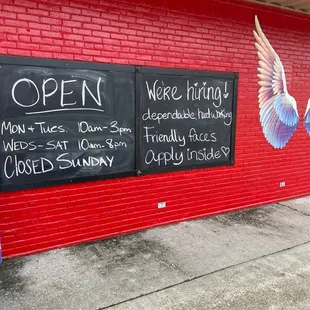 OPEN
Mon + Tues. 10am - 3pm
WEDS - SAT 10am - 8pm
CLOSED SUNDAY
We're hiring!
dependable, hard working
Friendly faces
Apply inside♡